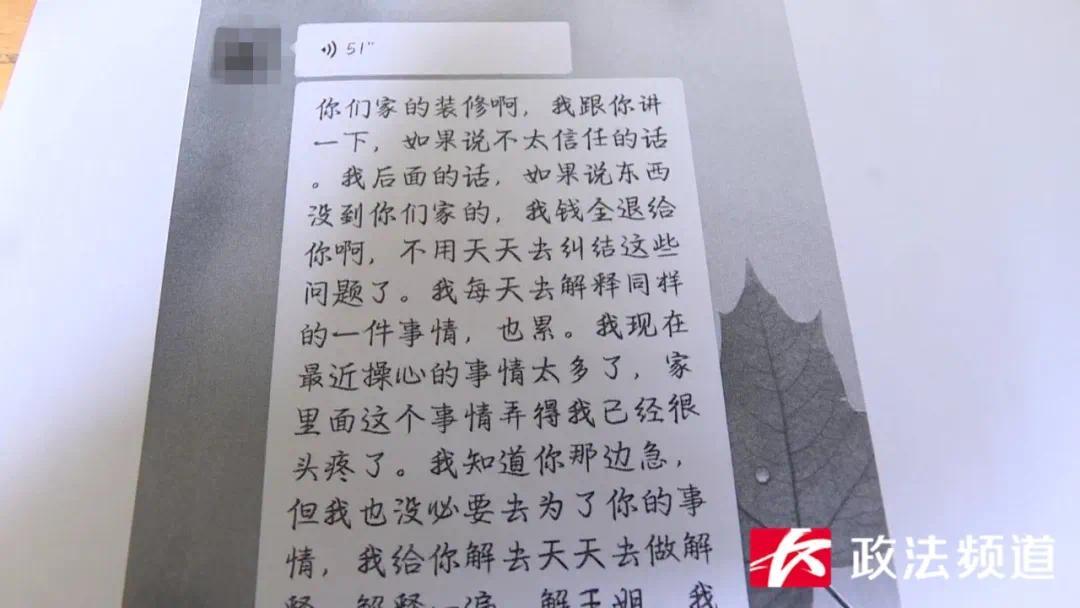 51"
你们家的装修啊，我跟你讲
一下，如果说不太信任的话
。我后面的话，如果说东西
没到你们家的，我钱全退给
你啊，不用天天去纠结这些
问题了。我每天去解释同样
的一件事情，也累。我现在
最近操心的事情太多了，家
里面这个事情弄得我已经很
头疼了。我知道你那边急，
但我也没必要去为了你的事
情，我给你解去天天去做解
释，解释一遍，解王姐，我
政法频道